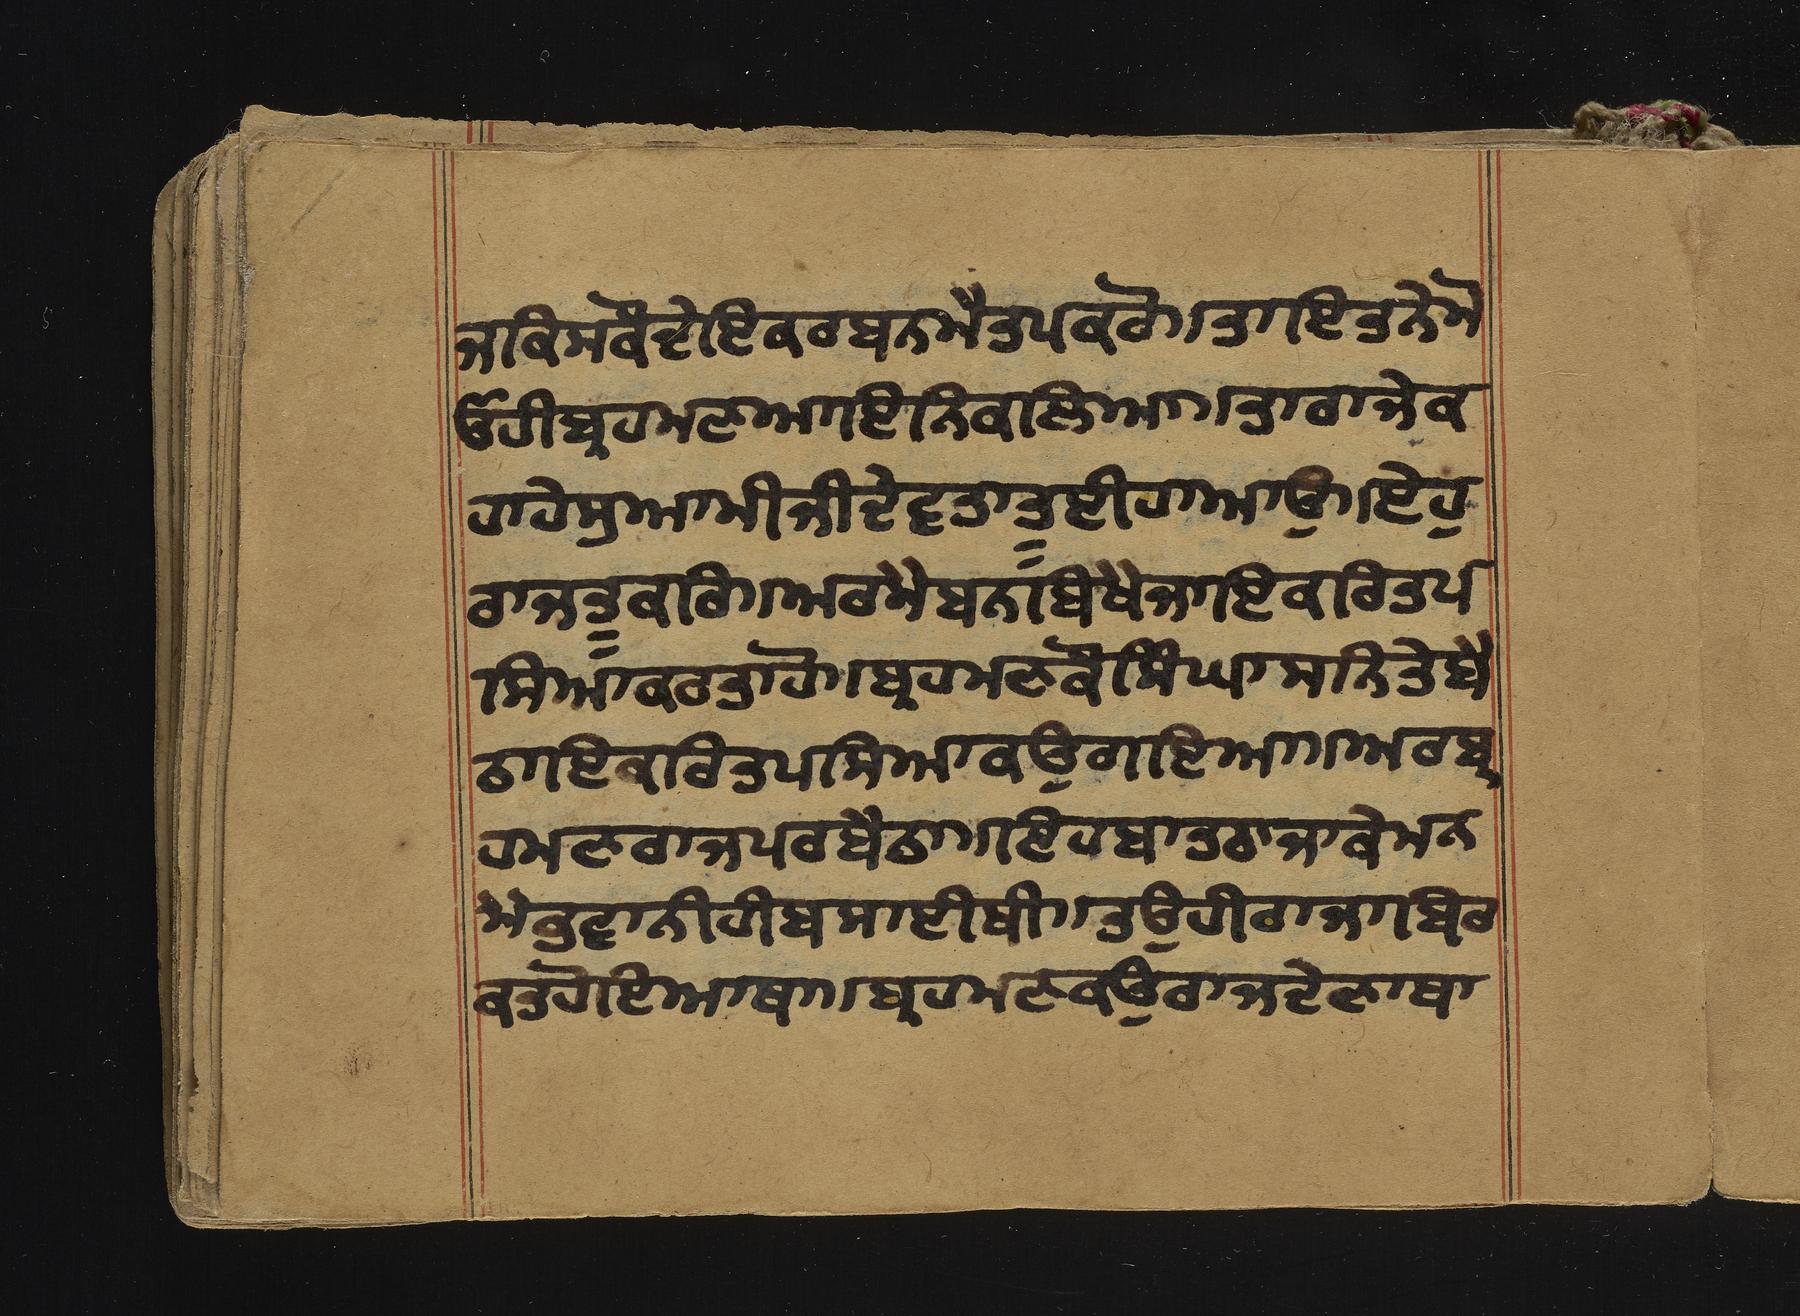 ਜਕਿਸਕੌਦੇਇਕਰਬਨਮੈਤਪਕਰੋ॥ਤਾਇਤਨੇਮੇ
ਓਹੀਬ੍ਰਹਮਣਆਇਨਿਕਲਿਆ॥ਤਾਰਾਜੇਕ
ਹਾਹੇਸੁਆਮੀਜੀਦੇਵਤਾਤੂਈਹਾਆਉ॥ਏਹੁ
ਰਾਜਤੂਕਰਿ॥ਅਰਮੈਬਨਬਿਖੈਜਾਇਕਰਿਤਪ
ਸਿਆਕਰਤਾਹੋ॥ਬ੍ਰਹਮਣਕੌਸਿੰਘਾਸਨਿਤੇਬੈ
ਠਾਇਕਰਿਤਪਸਿਆਕਉਗਇਆ॥ਅਰਬ੍ਰ
ਹਮਣਰਾਜਪਰਬੈਠਾ॥ਇਹਬਾਤਰਾਜਾਕੇਮਨ
ਮੇਰੁਵਾਨੀਹੀਬਸਾਈਥੀ॥ਤਉਹੀਰਾਜਾਬਿਰ
ਕਤਹੋਇਆਥਾ॥ਬ੍ਰਹਮਣਕਉਰਾਜਦੇਣਾਥਾ